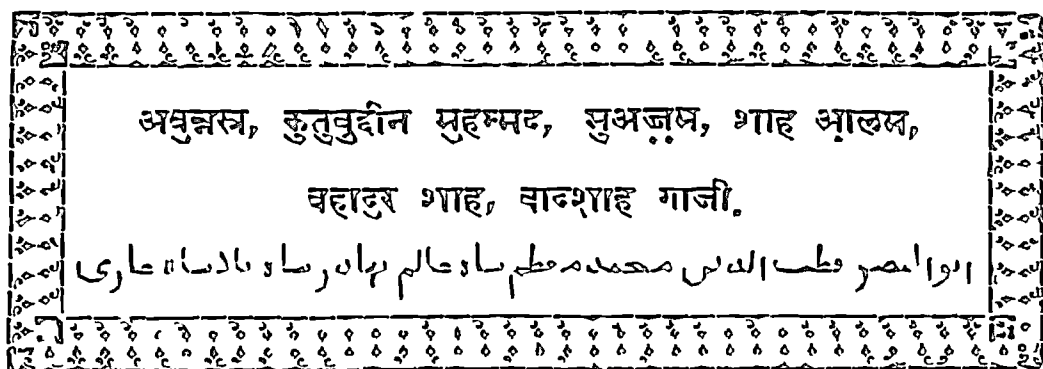 अबुन्नस्र, कुतुबुद्दीन मुहम्मद, मुअज़्ज़म, शाह आ़लम,
बहादुर शाह, बादशाह गाजी.
ابوالنصر قطب الدین محمد معظم شاہ عالم بہادر شاہ بادشاہ غازی